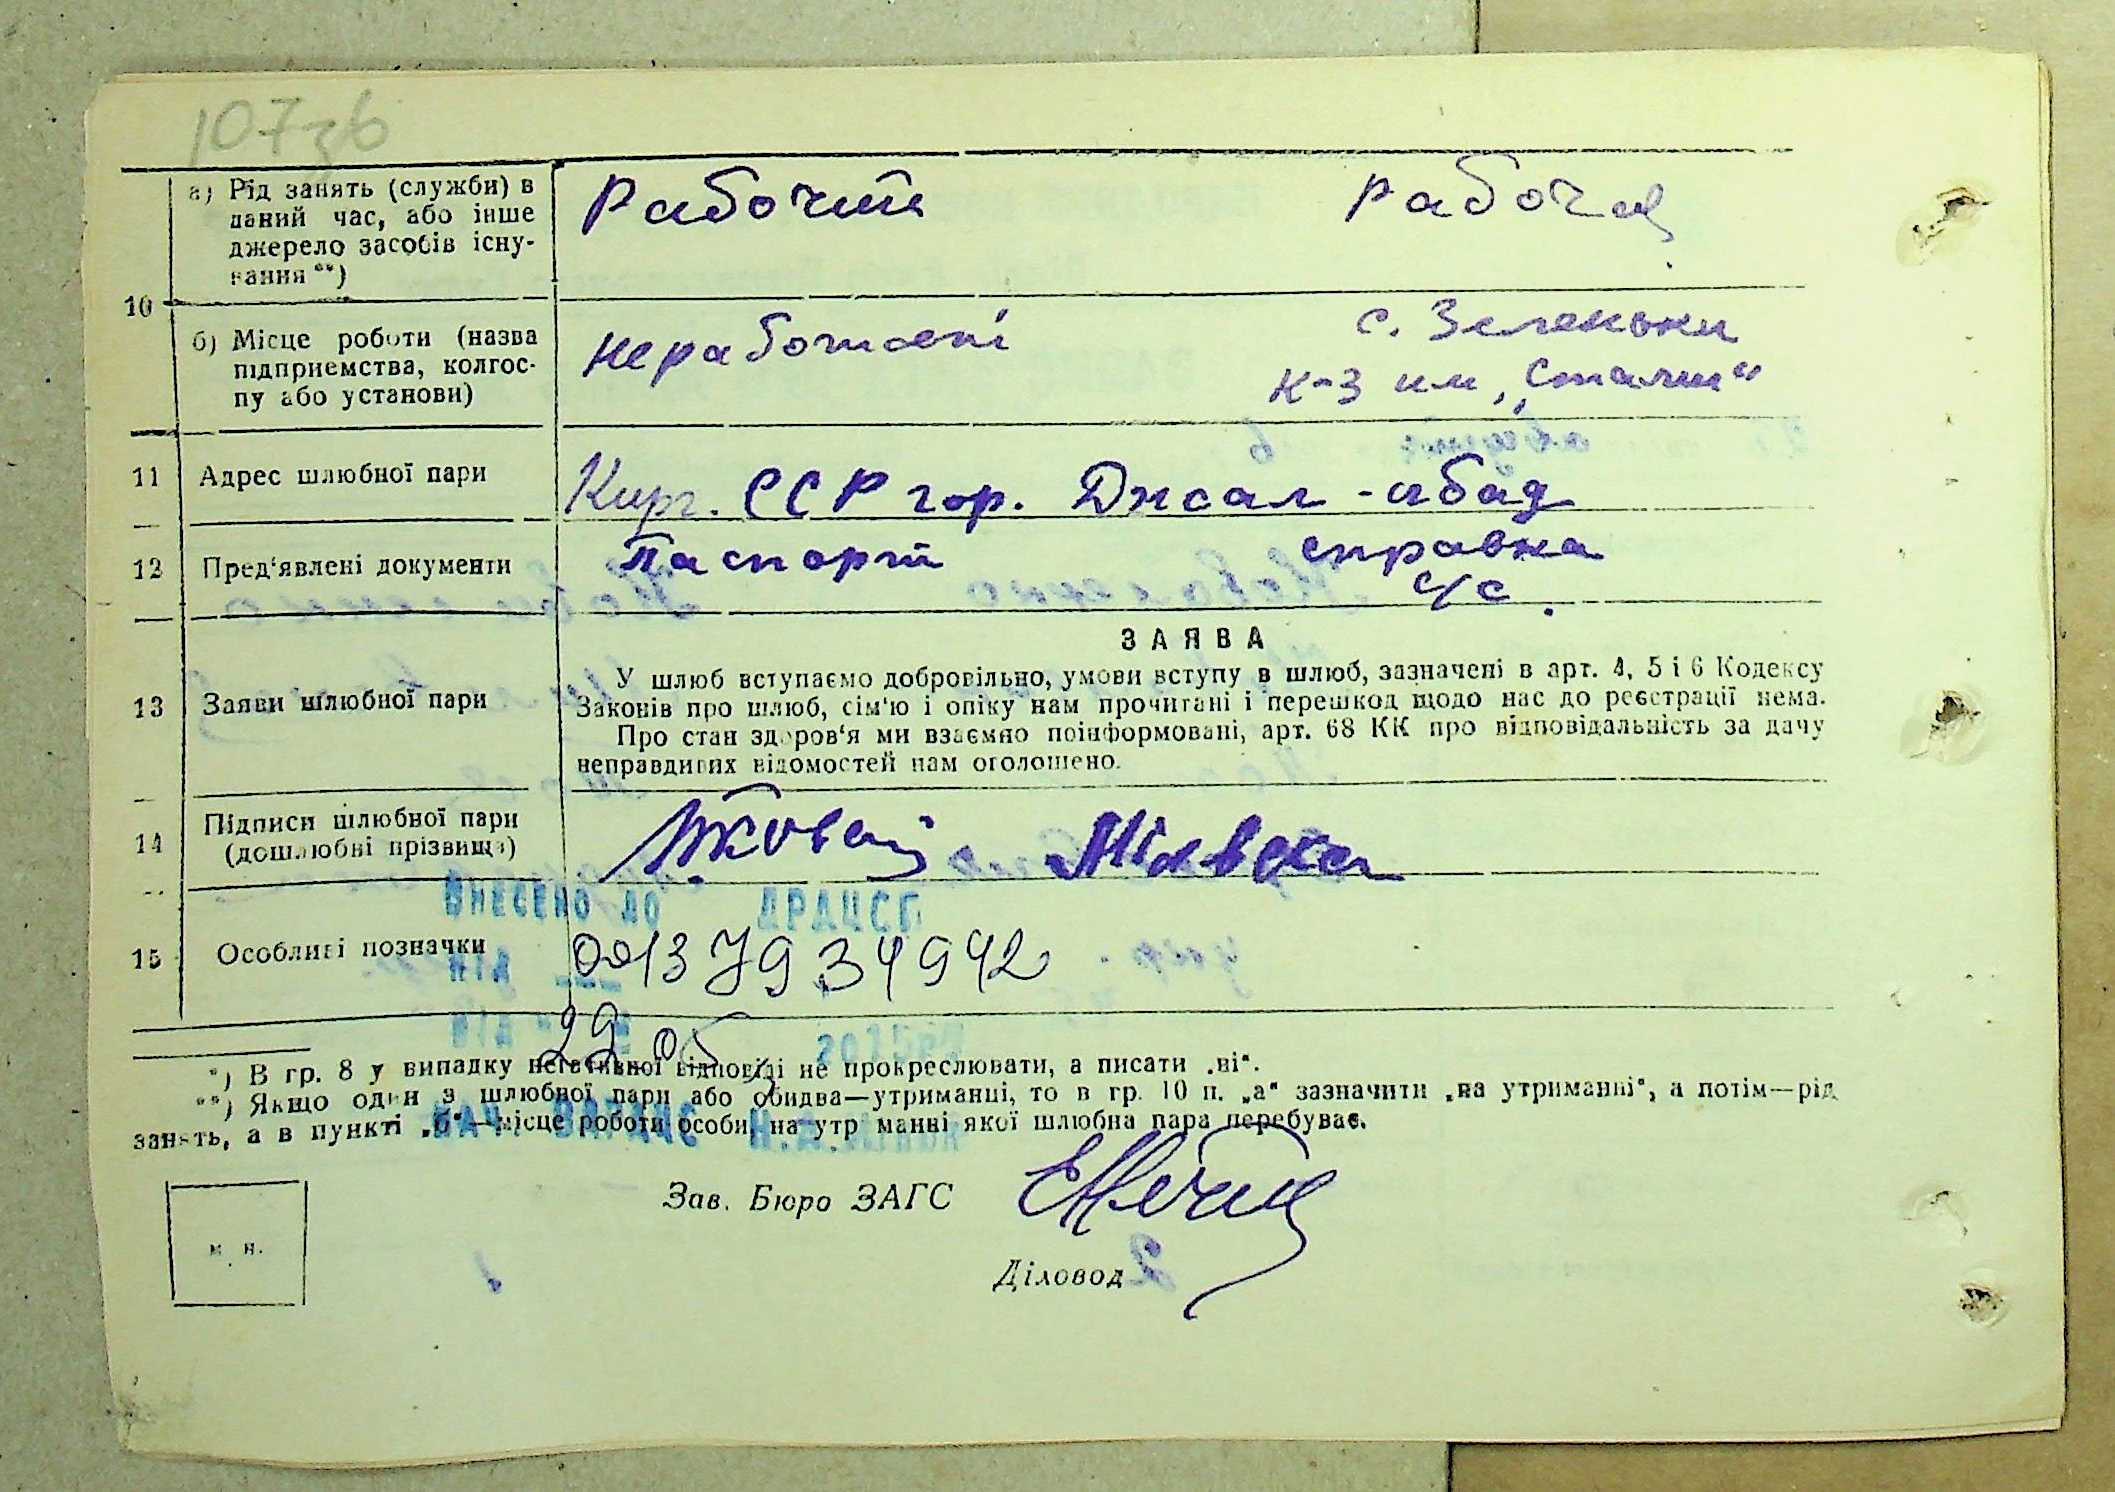 107зв
а) Рід занять (служби) в даний час, або інше джерело засобів існування**)
Рабочий
Рабочая
10
б) Місце роботи (назва підприємства, колгоспу або установи)
неработает
с. Зеленьки
к-з им „Сталин"
11
Адрес шлюбної пари
Кирг. ССР гор. Джал-абад
12
Пред'явлені документи
Паспорт
справка
с/с.
13
Заяви шлюбної пари
ЗАЯВА
У шлюб вступаємо добровільно, умови вступу в шлюб, зазначені в арт. 4, 5 і 6 Кодексу
Законів про шлюб, сім'ю і опіку нам прочитані і перешкод щодо нас до реєстрації нема.
Про стан здоров'я ми взаємно поінформовані, арт. 68 КК про відповідальність за дачу
неправдивих відомостей нам оголошено.
14
Підписи шлюбної пари
(дошлюбні прізвища)
Внесено до ДРАЦСГ
15
Особливі позначки
00137934942
від
29 05
*) В гр. 8 у випадку негативної відповіді не прокреслювати, а писати „ні".
**) Якщо один з шлюбної пари або обидва—утриманці, то в гр. 10 п. „а" зазначити „на утриманні", а потім—рід
занять, а в пункті „б"—місце роботи особи, на утриманні якої шлюбна пара перебуває.
Зав. Бюро ЗАГС
м. п.
Діловод